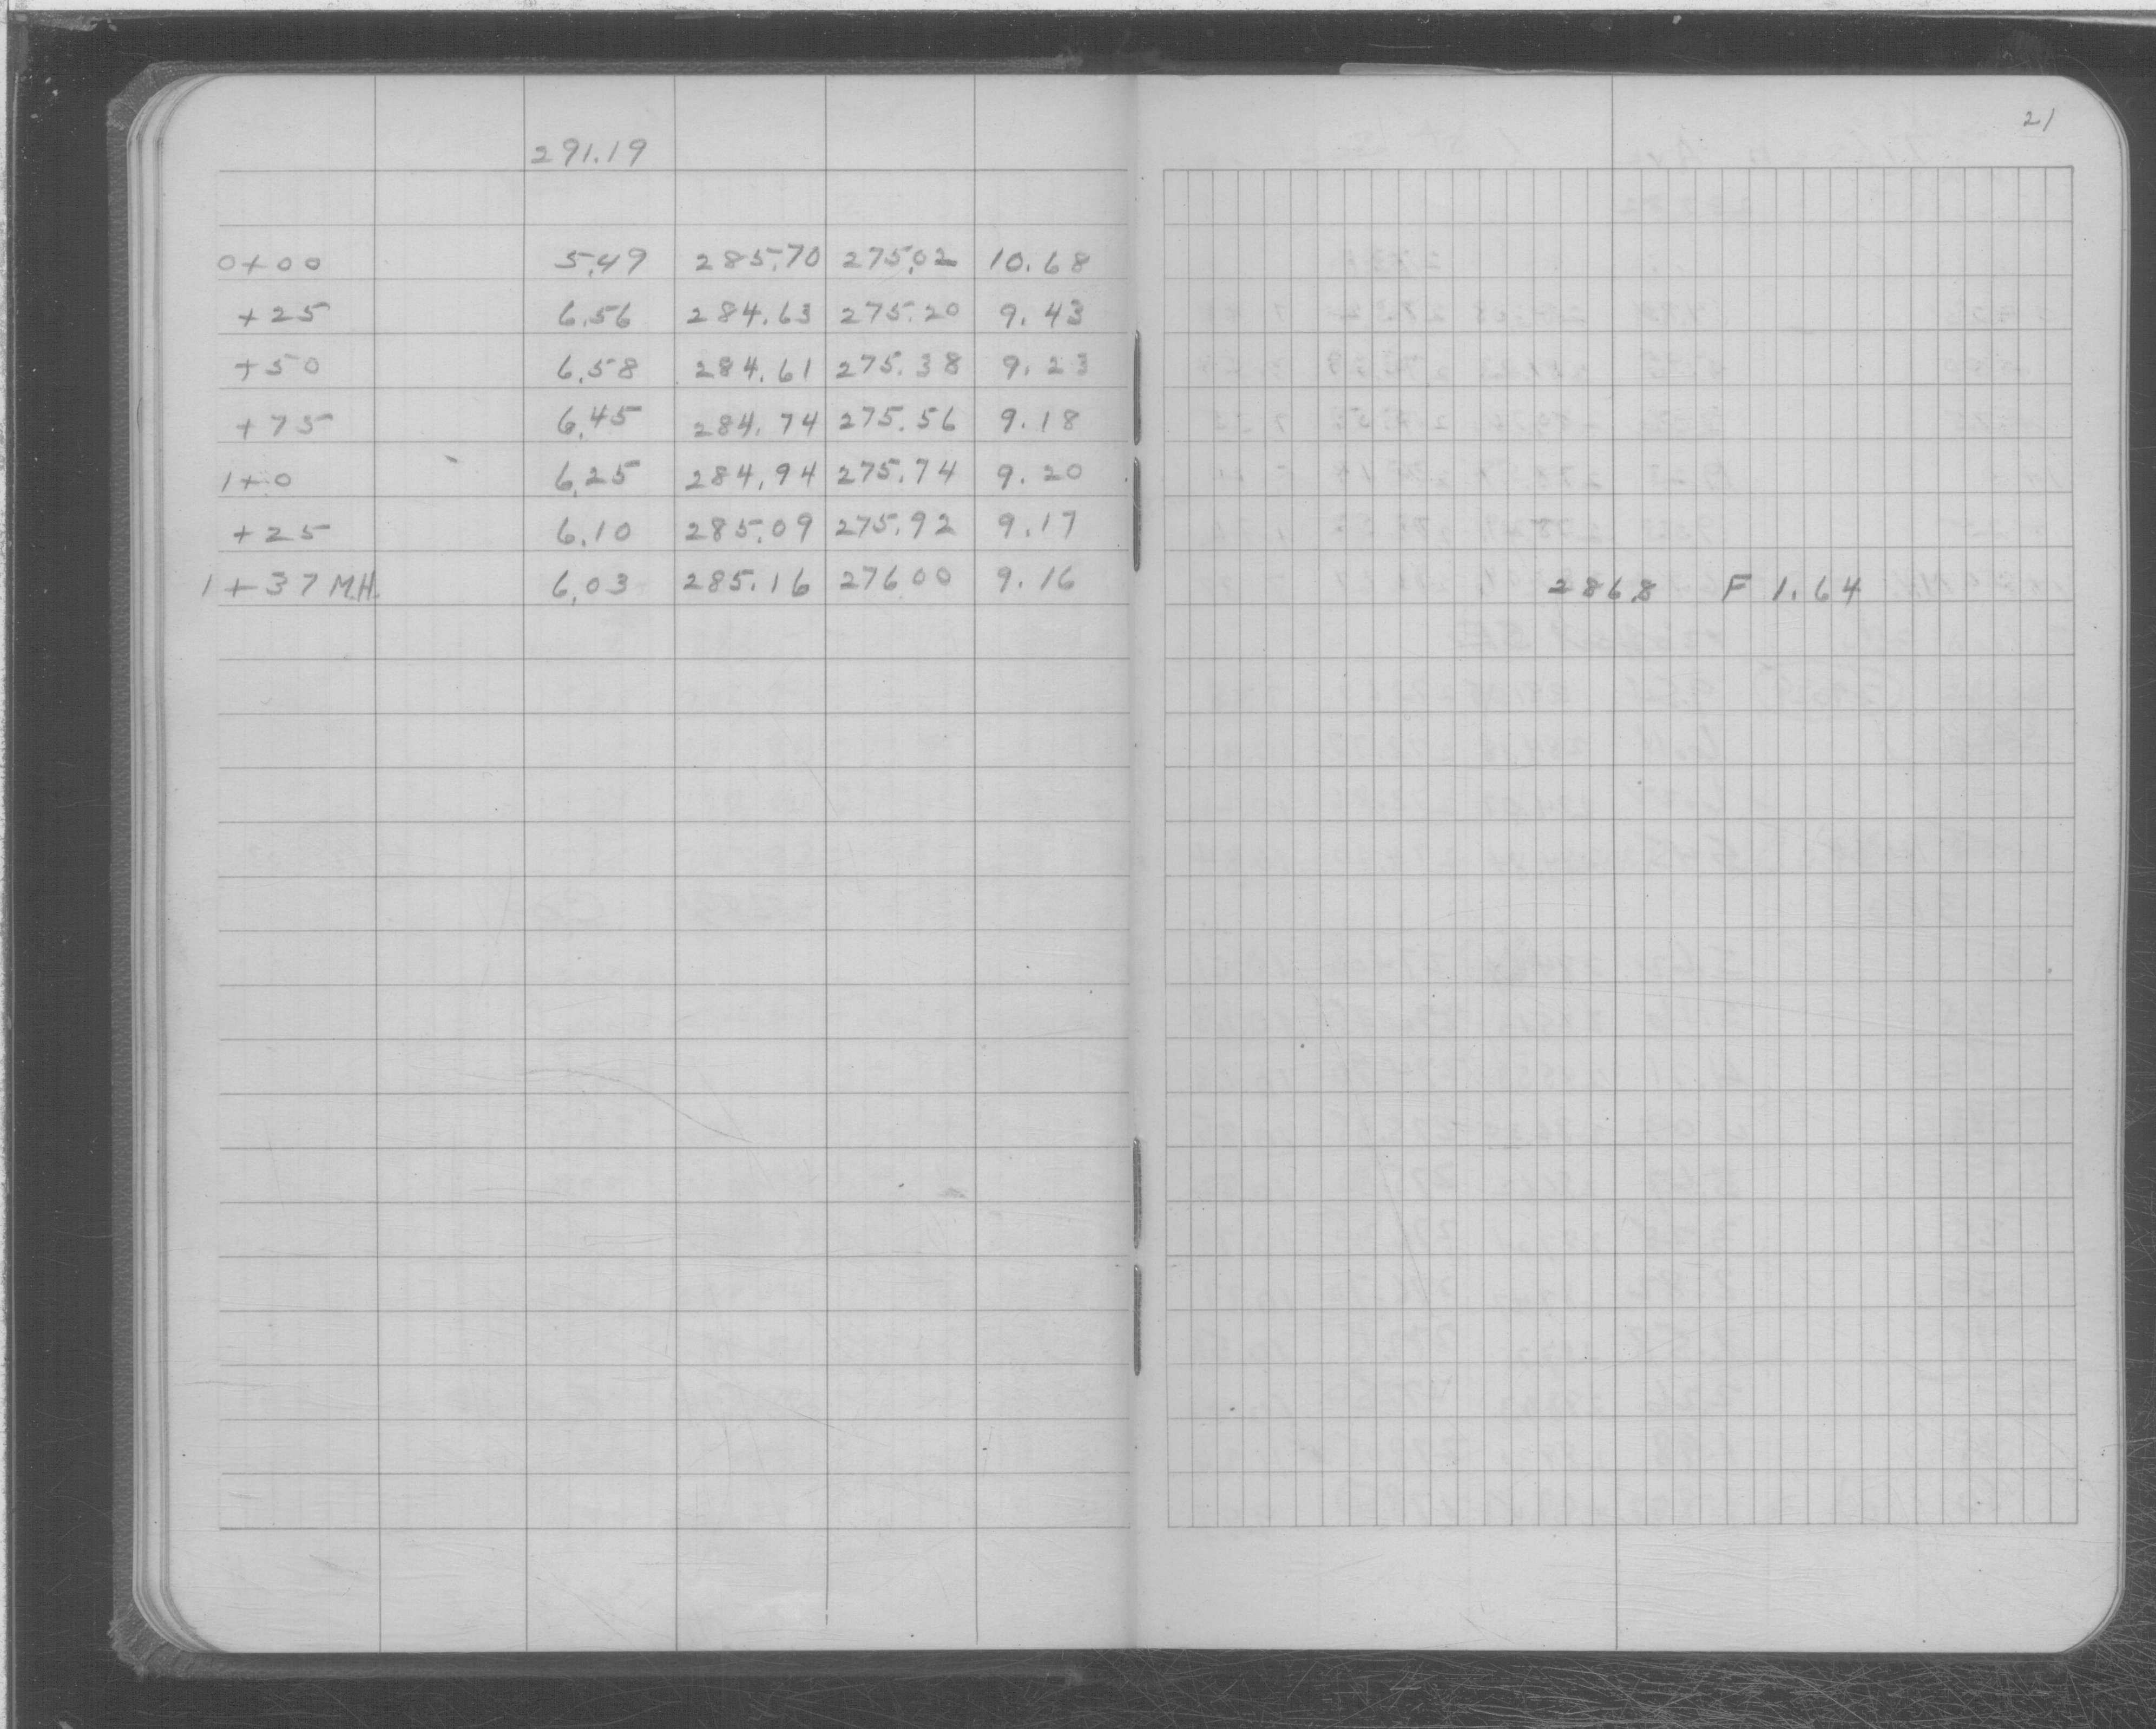 21
291.19
0+00 5.49 285.70 275.02 10.68
+25 6.56 284.63 275.20 9.43
+50 6.58 284.61 275.38 9.23
+75 6.45 284.74 275.56 9.18
1+0 6.25 284.94 275.74 9.20
+25 6.10 285.09 275.92 9.17
1+37 M.H. 6.03 285.16 276 00 9.16 286.8 F 1.64